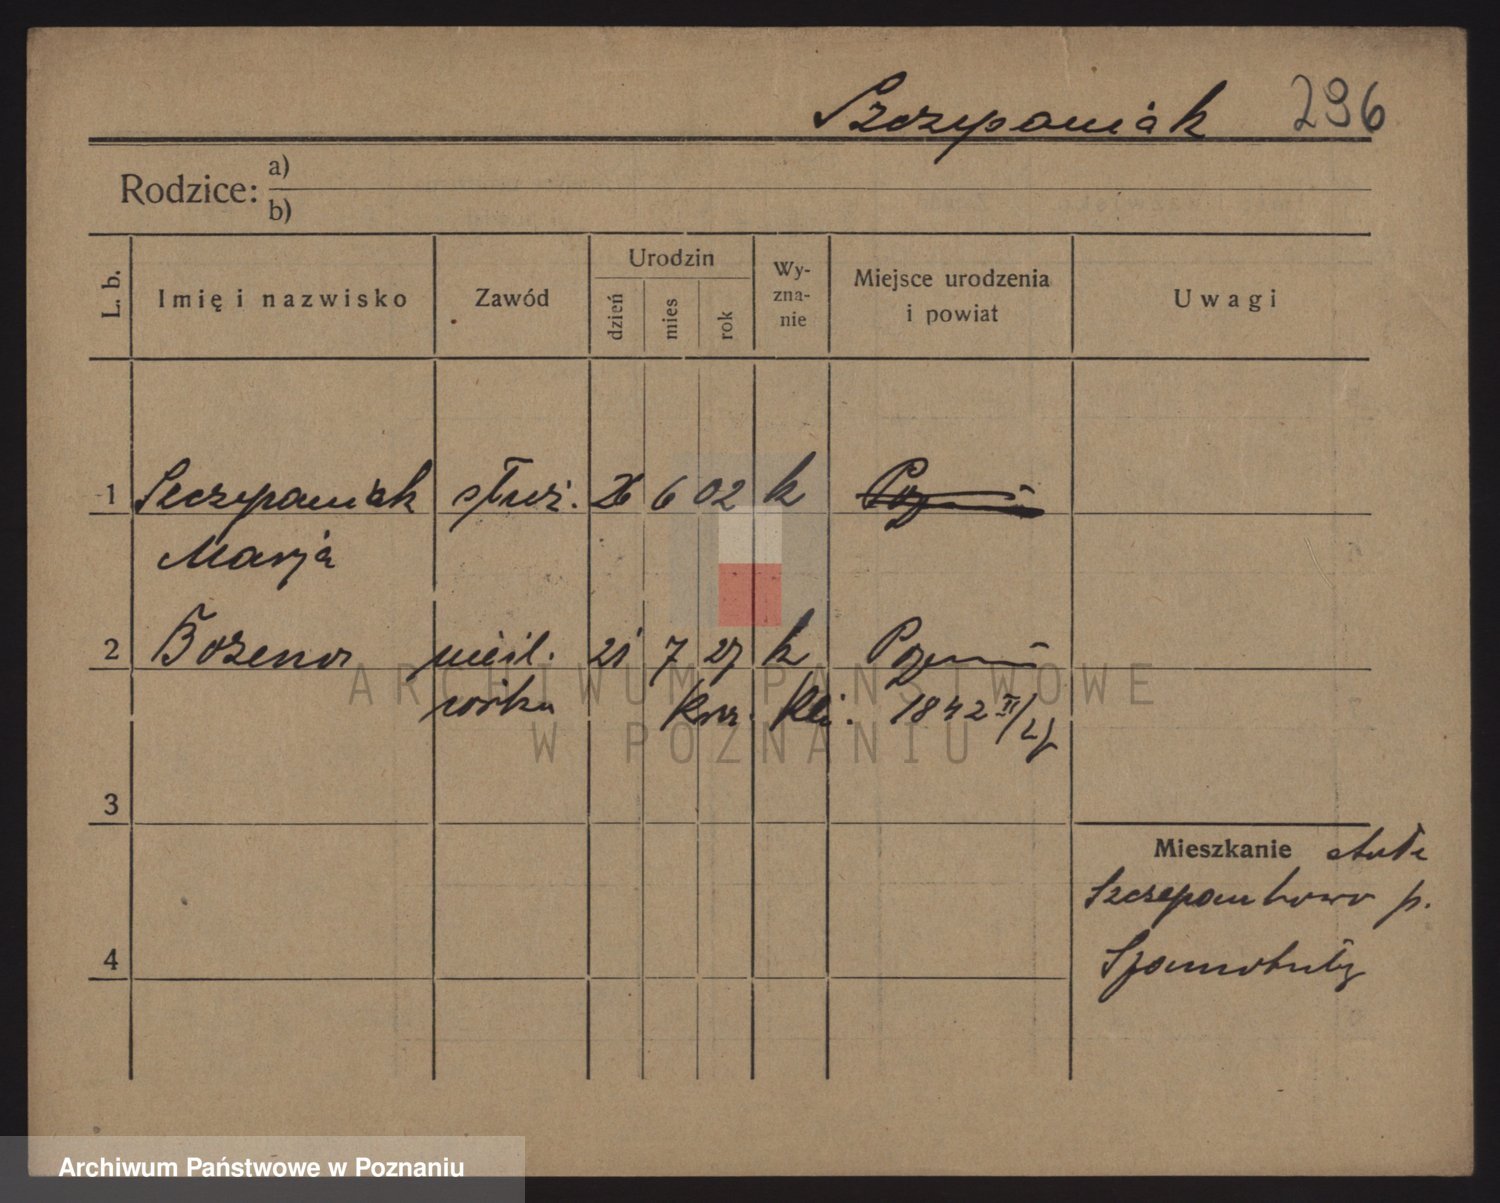 Szczepaniak 296
Rodzice: a)
b)
L. b. Imię i nazwisko Zawód Urodzin dzień mies rok Wy-zna-nie Miejsce urodzenia i powiat Uwagi
1 Szczepaniak służ. 26 6 02 k
Marja
2 Bożena nieśl. 21 7 27 k Poznań
córka Kli. 1842 II/27
3
Mieszkanie stałe
Szczepankowo p.
Szamotuły
4
ARCHIWUM PAŃSTWOWE
W POZNANIU
Archiwum Państwowe w Poznaniu